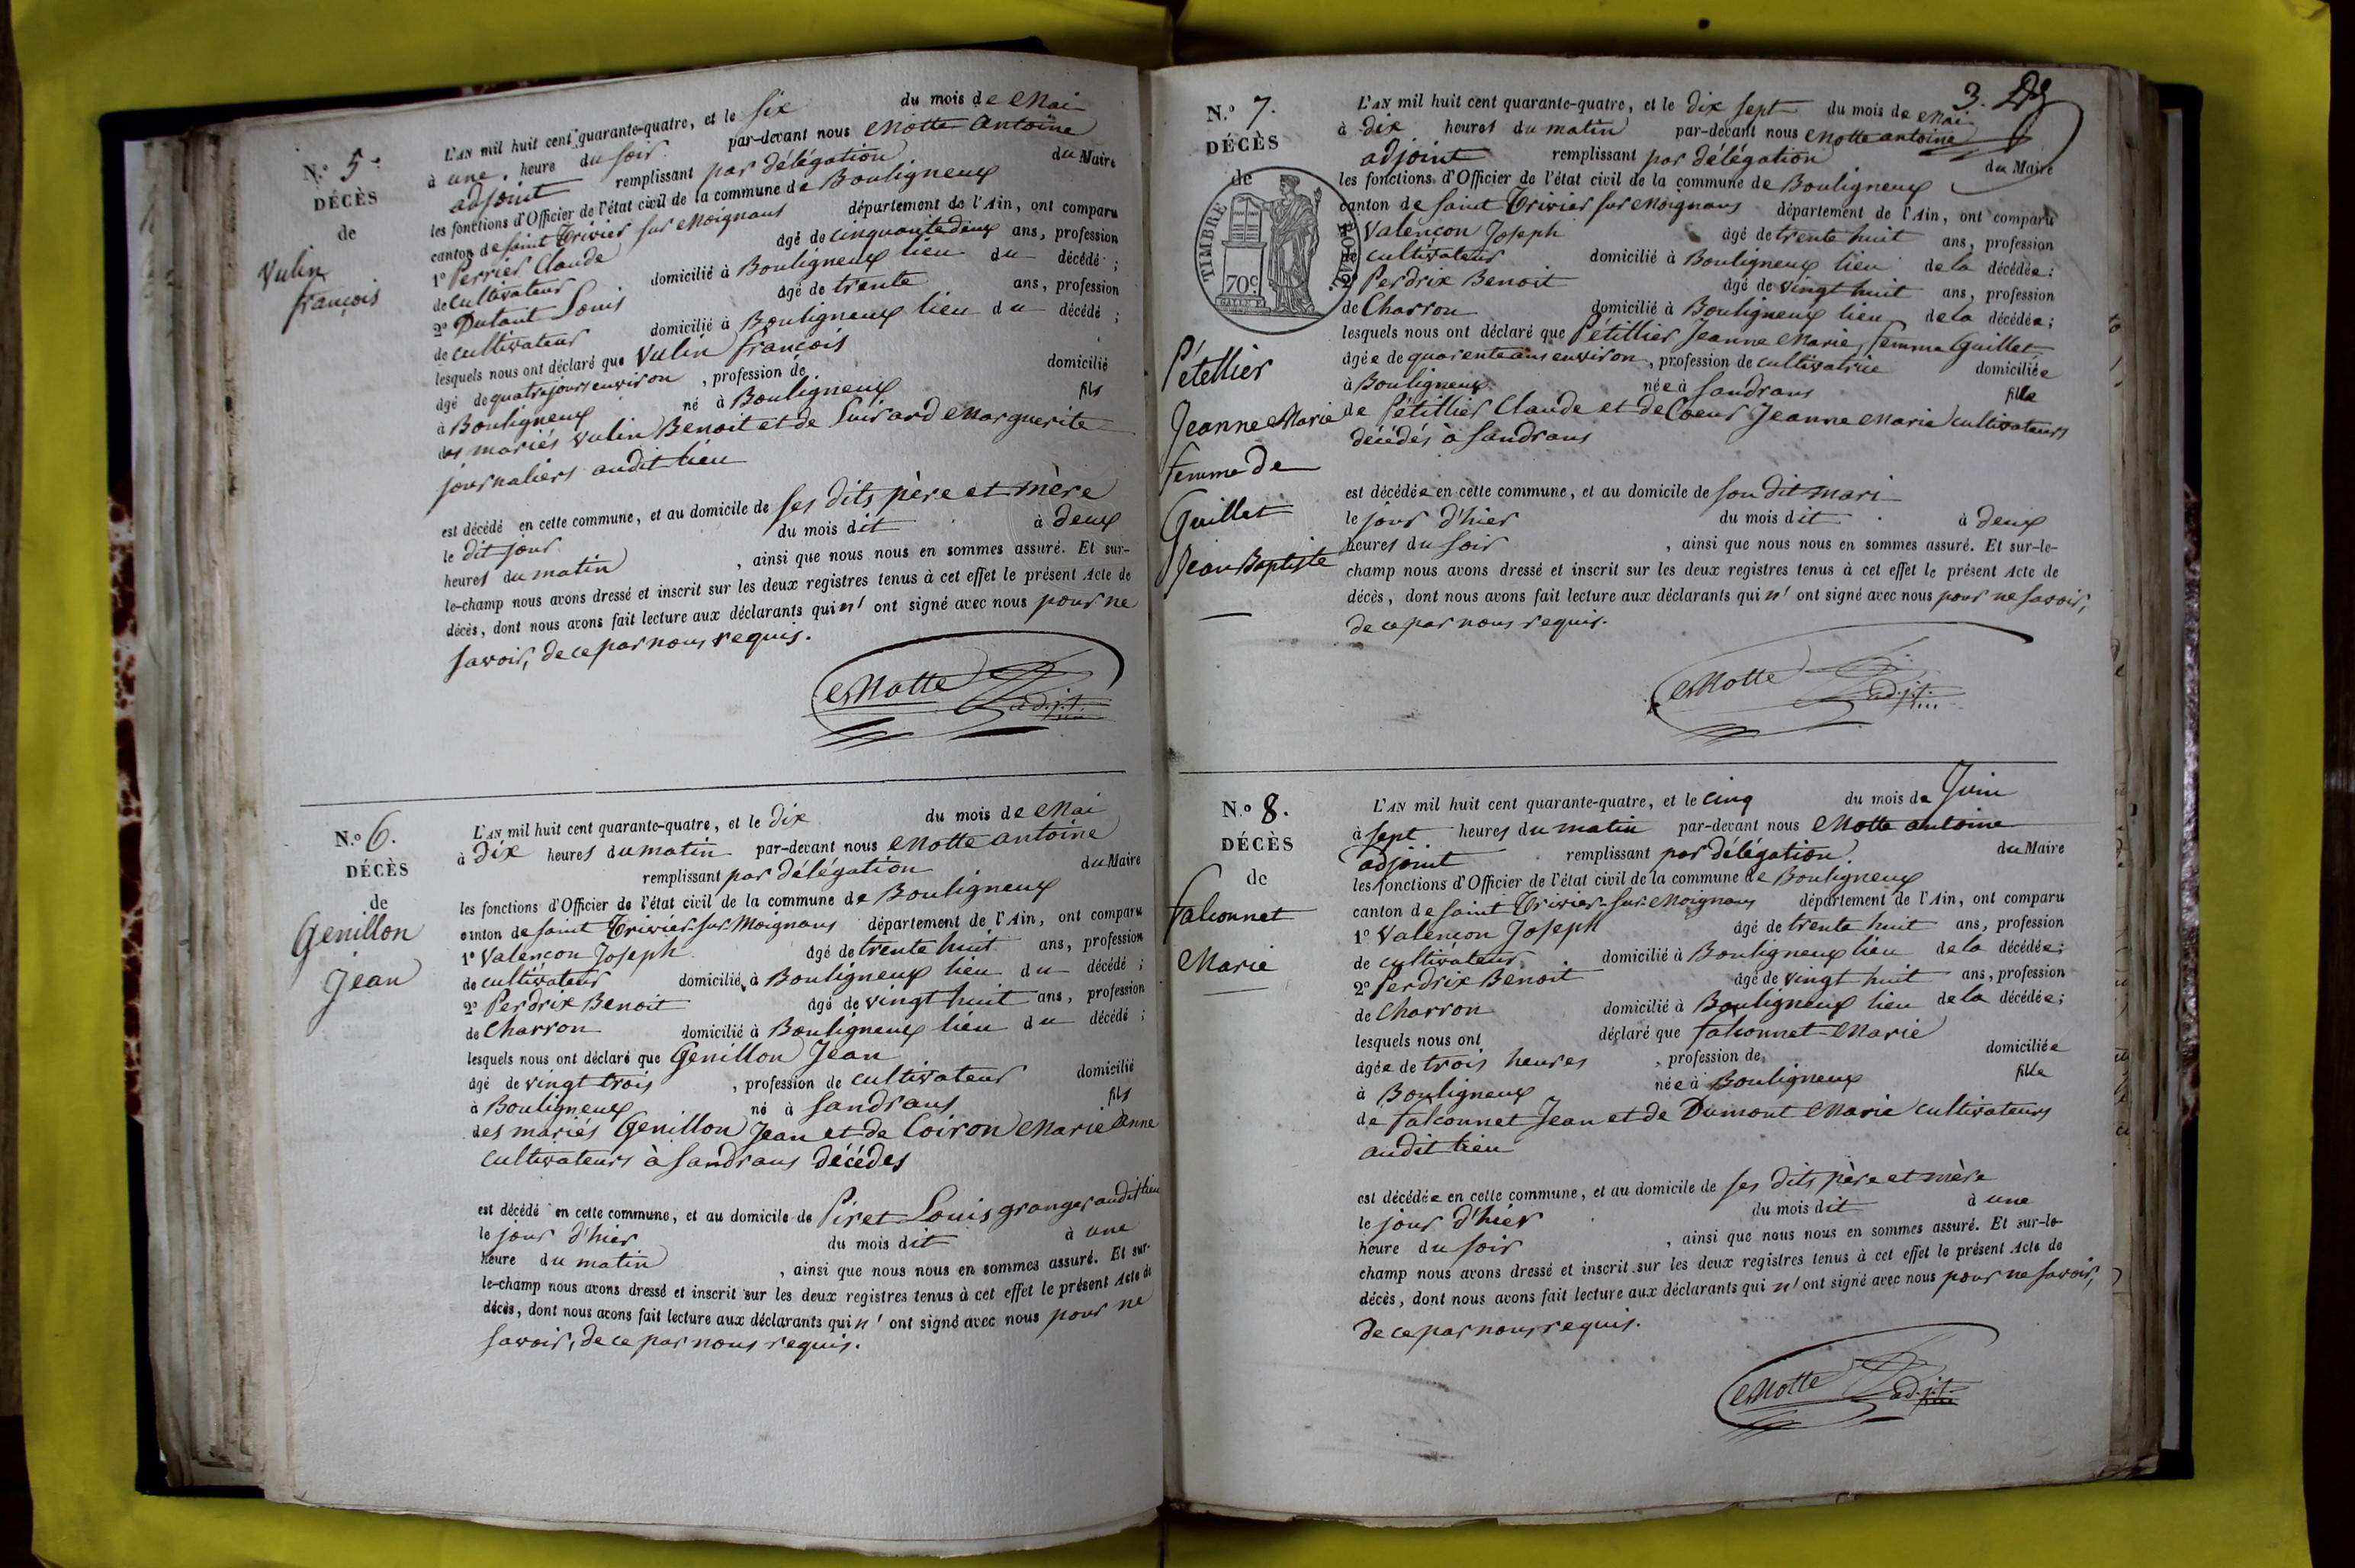 N.° 5.
DÉCÈS
de
Vulin
françois
L'AN mil huit cent quarante-quatre, et le Six du mois de Mai
à une heure du soir par-devant nous Motte Antoine
adjoint remplissant par délégation du Maire
les fonctions d'Officier de l'état civil de la commune de Bouligneux
canton de saint Trivier sur Moignans département de l'Ain, ont comparu
1° Perrier Claude âgé de cinquante deux ans, profession
de cultivateur domicilié à Bouligneux lieu du décédé ;
2° Dutant Louis âgé de trente ans, profession
de cultivateur domicilié à Bouligneux lieu du décédé ;
lesquels nous ont déclaré que Vulin françois
âgé de quatre jours environ , profession de domicilié
à Bouligneux né à Bouligneux fils
des mariés Vulin Benoit et de Marguerite
journaliers audit lieu
est décédé en cette commune, et au domicile de ses dits père et mère
le dit jour du mois dit à deux
heures du matin , ainsi que nous nous en sommes assuré. Et sur-
le-champ nous avons dressé et inscrit sur les deux registres tenus à cet effet le présent Acte de
décès, dont nous avons fait lecture aux déclarants qui n' ont signé avec nous pour ne
savoir, de ce par nous requis.
Motte adjt.
N.° 6.
DÉCÈS
de
Genillon
Jean
L'AN mil huit cent quarante-quatre, et le dix du mois de Mai
à dix heures du matin par-devant nous Motte antoine
remplissant par délégation du Maire
les fonctions d'Officier de l'état civil de la commune de Bouligneux
canton de saint Trivier-sur-Moignans département de l'Ain, ont comparu
1° Valencon Joseph âgé de trente huit ans, profession
de cultivateur domicilié à Bouligneux lieu du décédé ;
2° Perdrix Benoit âgé de vingt huit ans, profession
de Charron domicilié à Bouligneux lieu du décédé ;
lesquels nous ont déclaré que Genillon Jean
âgé de vingt trois , profession de cultivateur domicilié
à Bouligneux né à Sandrans fils
des mariés Genillon Jean et de Coiron Marie Anne
cultivateurs à Sandrans décédes
est décédé en cette commune, et au domicile de Piret Louis granger audit lieu
le jour d'hier du mois dit à une
heure du matin , ainsi que nous nous en sommes assuré. Et sur-
le-champ nous avons dressé et inscrit sur les deux registres tenus à cet effet le présent Acte de
décès, dont nous avons fait lecture aux déclarants qui n' ont signé avec nous pour ne
savoir, de ce par nous requis.
3.
N.° 7.
DÉCÈS
de
TIMBRE ROYAL
70c.
Pétellier
Jeanne Marie
femme de
Guillet
Jean Baptiste
L'AN mil huit cent quarante-quatre, et le dix sept du mois de Mai
à dix heures du matin par-devant nous Motte antoine
adjoint remplissant par délégation du Maire
les fonctions d'Officier de l'état civil de la commune de Bouligneux
canton de saint Trivier sur Moignans département de l'Ain, ont comparu
1° Valencon Joseph âgé de trente huit ans, profession
de cultivateur domicilié à Bouligneux lieu de la décédée ;
2° Perdrix Benoit âgé de vingt huit ans, profession
de Charron domicilié à Bouligneux lieu de la décédée ;
lesquels nous ont déclaré que Pétillier Jeanne Marie, femme Guillet
âgée de quarente ans environ , profession de cultivatrice domiciliée
à Bouligneux née à Sandrans fille
de Pétillier Claude et de Coeur Jeanne Marie cultivateurs
décédés à Sandrans
est décédée en cette commune, et au domicile de son dit mari
le jour d'hier du mois dit à deux
heures du soir , ainsi que nous nous en sommes assuré. Et sur-le-
champ nous avons dressé et inscrit sur les deux registres tenus à cet effet le présent Acte de
décès, dont nous avons fait lecture aux déclarants qui n' ont signé avec nous pour ne savoir,
de ce par nous requis.
Motte adjt.
N.° 8.
DÉCÈS
de
falconnet
Marie
L'AN mil huit cent quarante-quatre, et le cinq du mois de Juin
à sept heures du matin par-devant nous Motte antoine
adjoint remplissant par délégation du Maire
les fonctions d'Officier de l'état civil de la commune de Bouligneux
canton de saint Trivier-sur-Moignans département de l'Ain, ont comparu
1° Valencon Joseph âgé de trente huit ans, profession
de cultivateur domicilié à Bouligneux lieu de la décédée ;
2° Perdrix Benoit âgé de vingt huit ans, profession
de Charron domicilié à Bouligneux lieu de la décédée ;
lesquels nous ont déclaré que falconnet Marie
âgée de trois heures , profession de domiciliée
à Bouligneux née à Bouligneux fille
de falconnet Jean et de Dumont Marie cultivateurs
audit lieu
est décédée en cette commune, et au domicile de ses dits père et mère
le jour d'hier du mois dit à une
heure du soir , ainsi que nous nous en sommes assuré. Et sur-le-
champ nous avons dressé et inscrit sur les deux registres tenus à cet effet le présent Acte de
décès, dont nous avons fait lecture aux déclarants qui n' ont signé avec nous pour ne savoir,
de ce par nous requis.
Motte adjt.